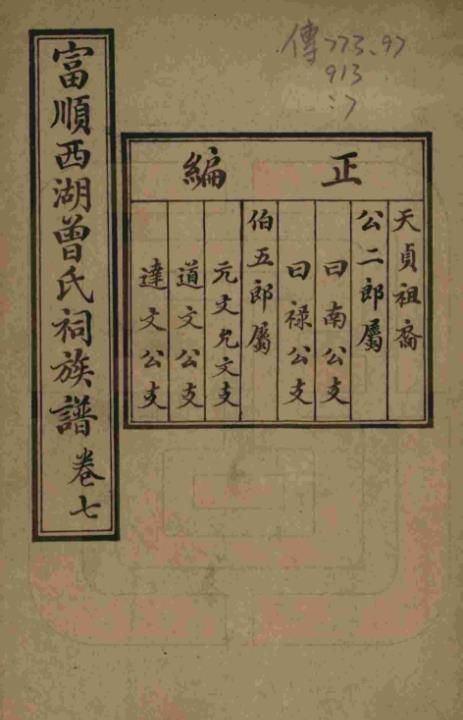 傳773.97
913
:7
富順西湖曾氏祠族譜 卷七
正編
天貞祖裔
公二郎屬
曰南公支
曰祿公支
伯五郎屬
元文允文支
道文公支
達文公支